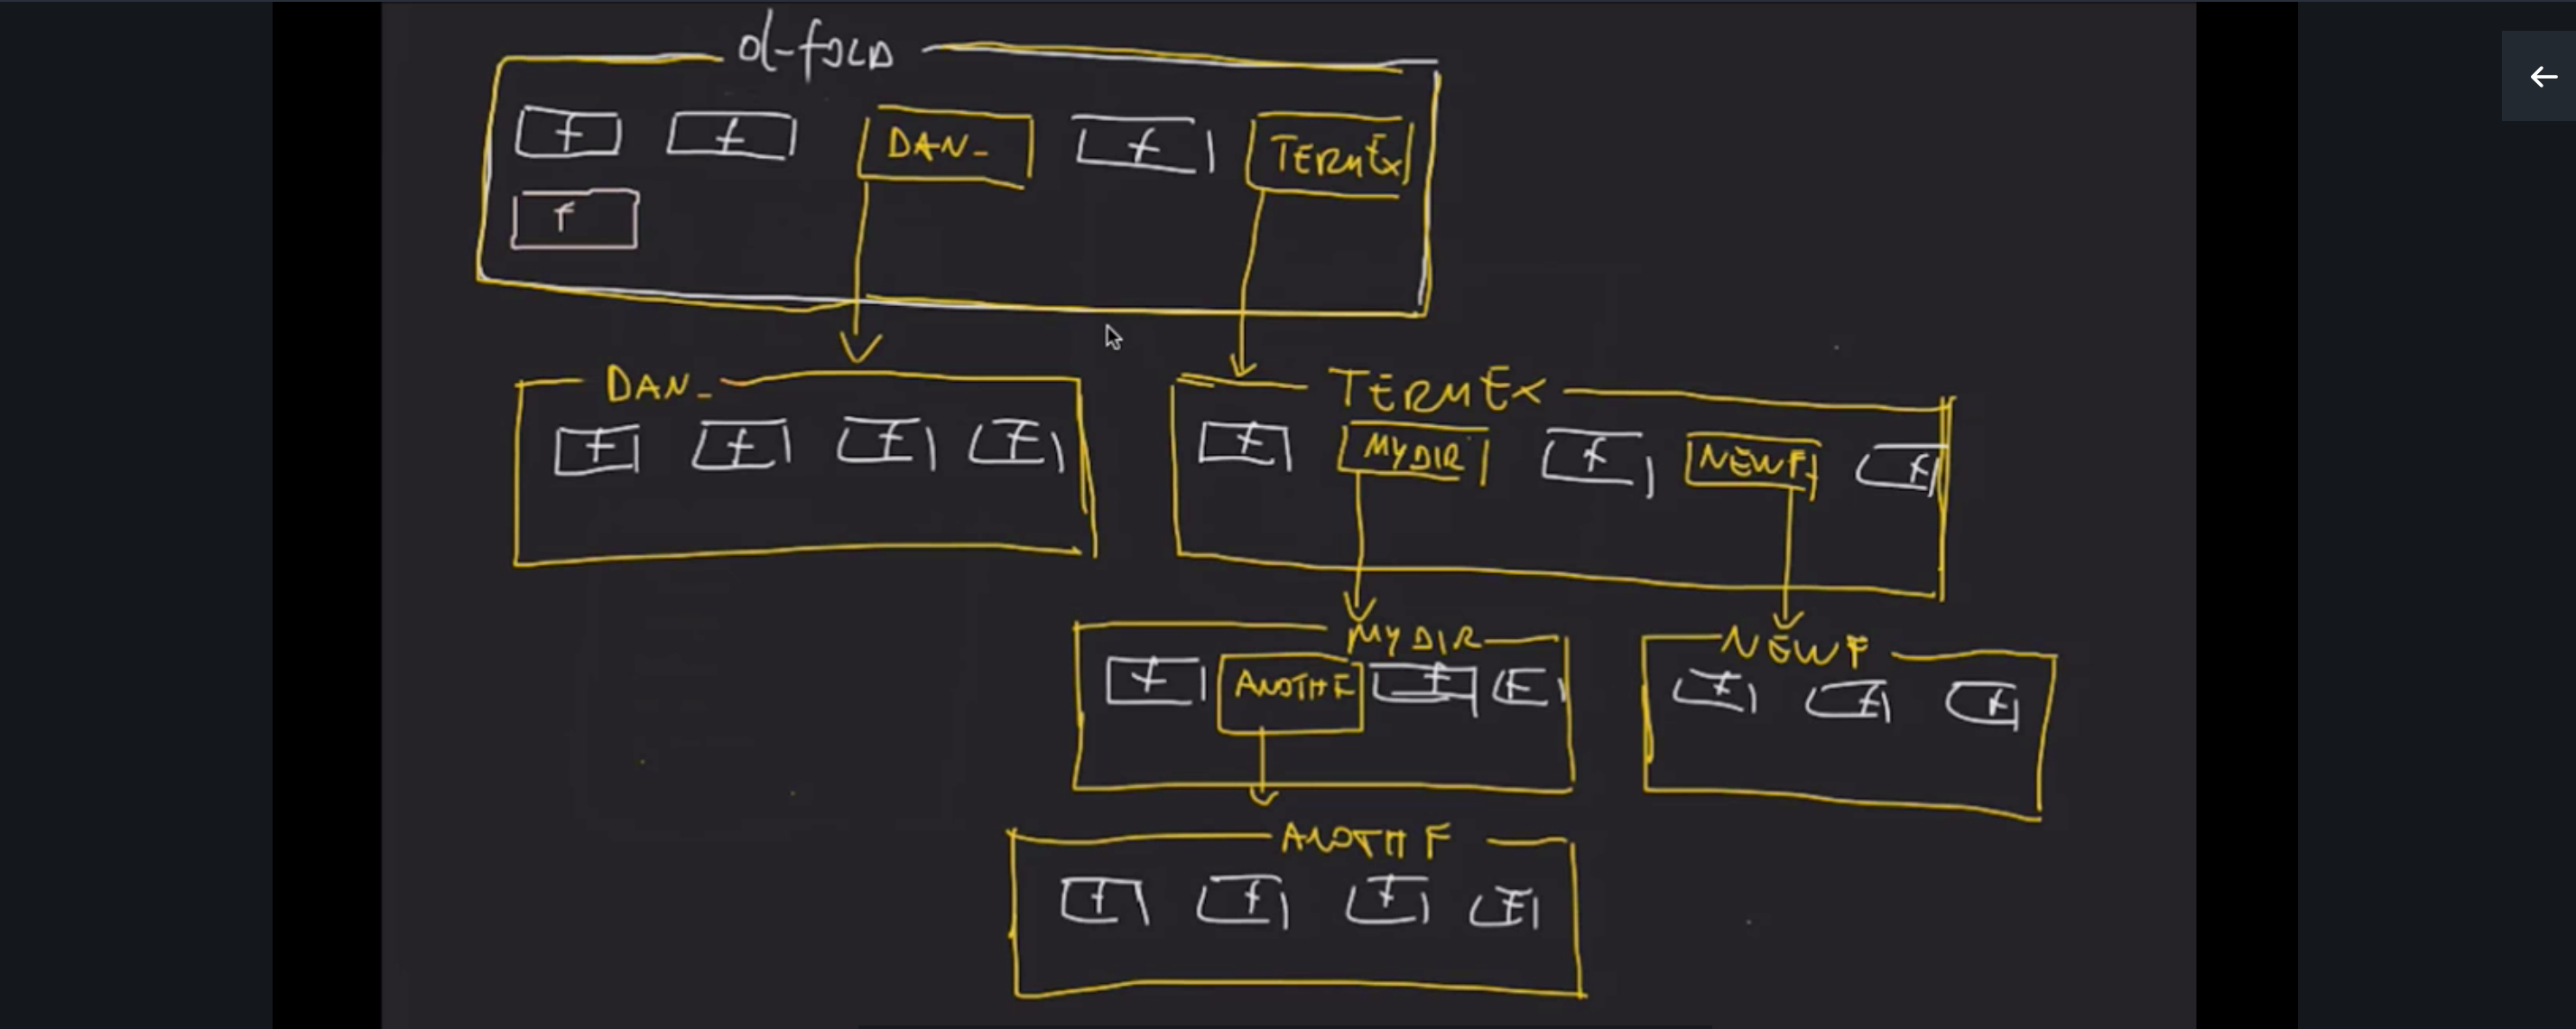 d-fOLD
f f DAN_ f TERMEx
f
DAN_
f f f f
TERMEx
f MYDIR f NEWF f
MYDIR
f ANOTHF f f
NEWF
f f f
ANOTHF
f f f f